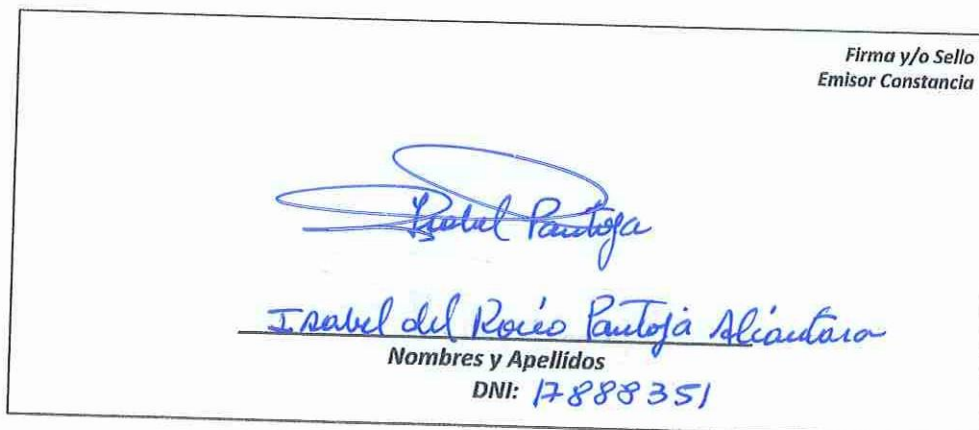 Firma y/o Sello
Emisor Constancia
Isabel Pantoja
Isabel del Rocío Pantoja Alcántara
Nombres y Apellidos
DNI: 17888351